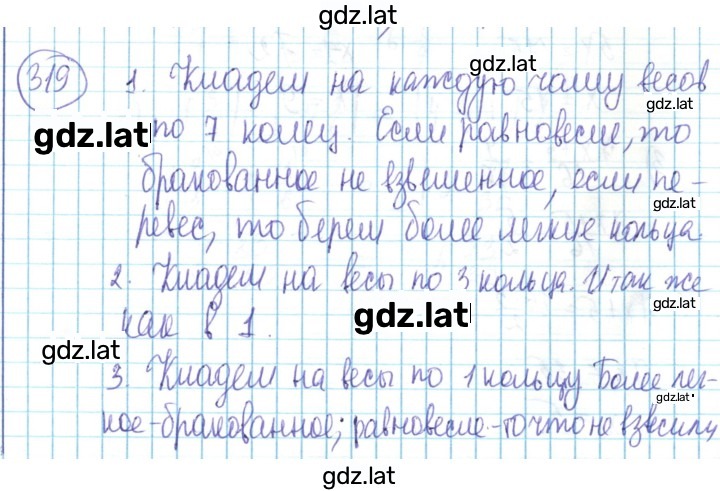 gdz.lat
319 1. Кладем на каждую чашу весов
gdz.lat
gdz.lat
gdz.lat по 7 колец. Если равновесие, то
бракованное не взвешенное, если пе-
gdz.lat
ревес, то берем более легкие кольца.
2. Кладем на весы по 3 кольца. И так же
gdz.lat
как в 1. gdz.lat
gdz.lat
3. Кладем на весы по 1 кольцу Более лег-
gdz.lat
кое - бракованное; равновесие - то что не взвесили
gdz.lat